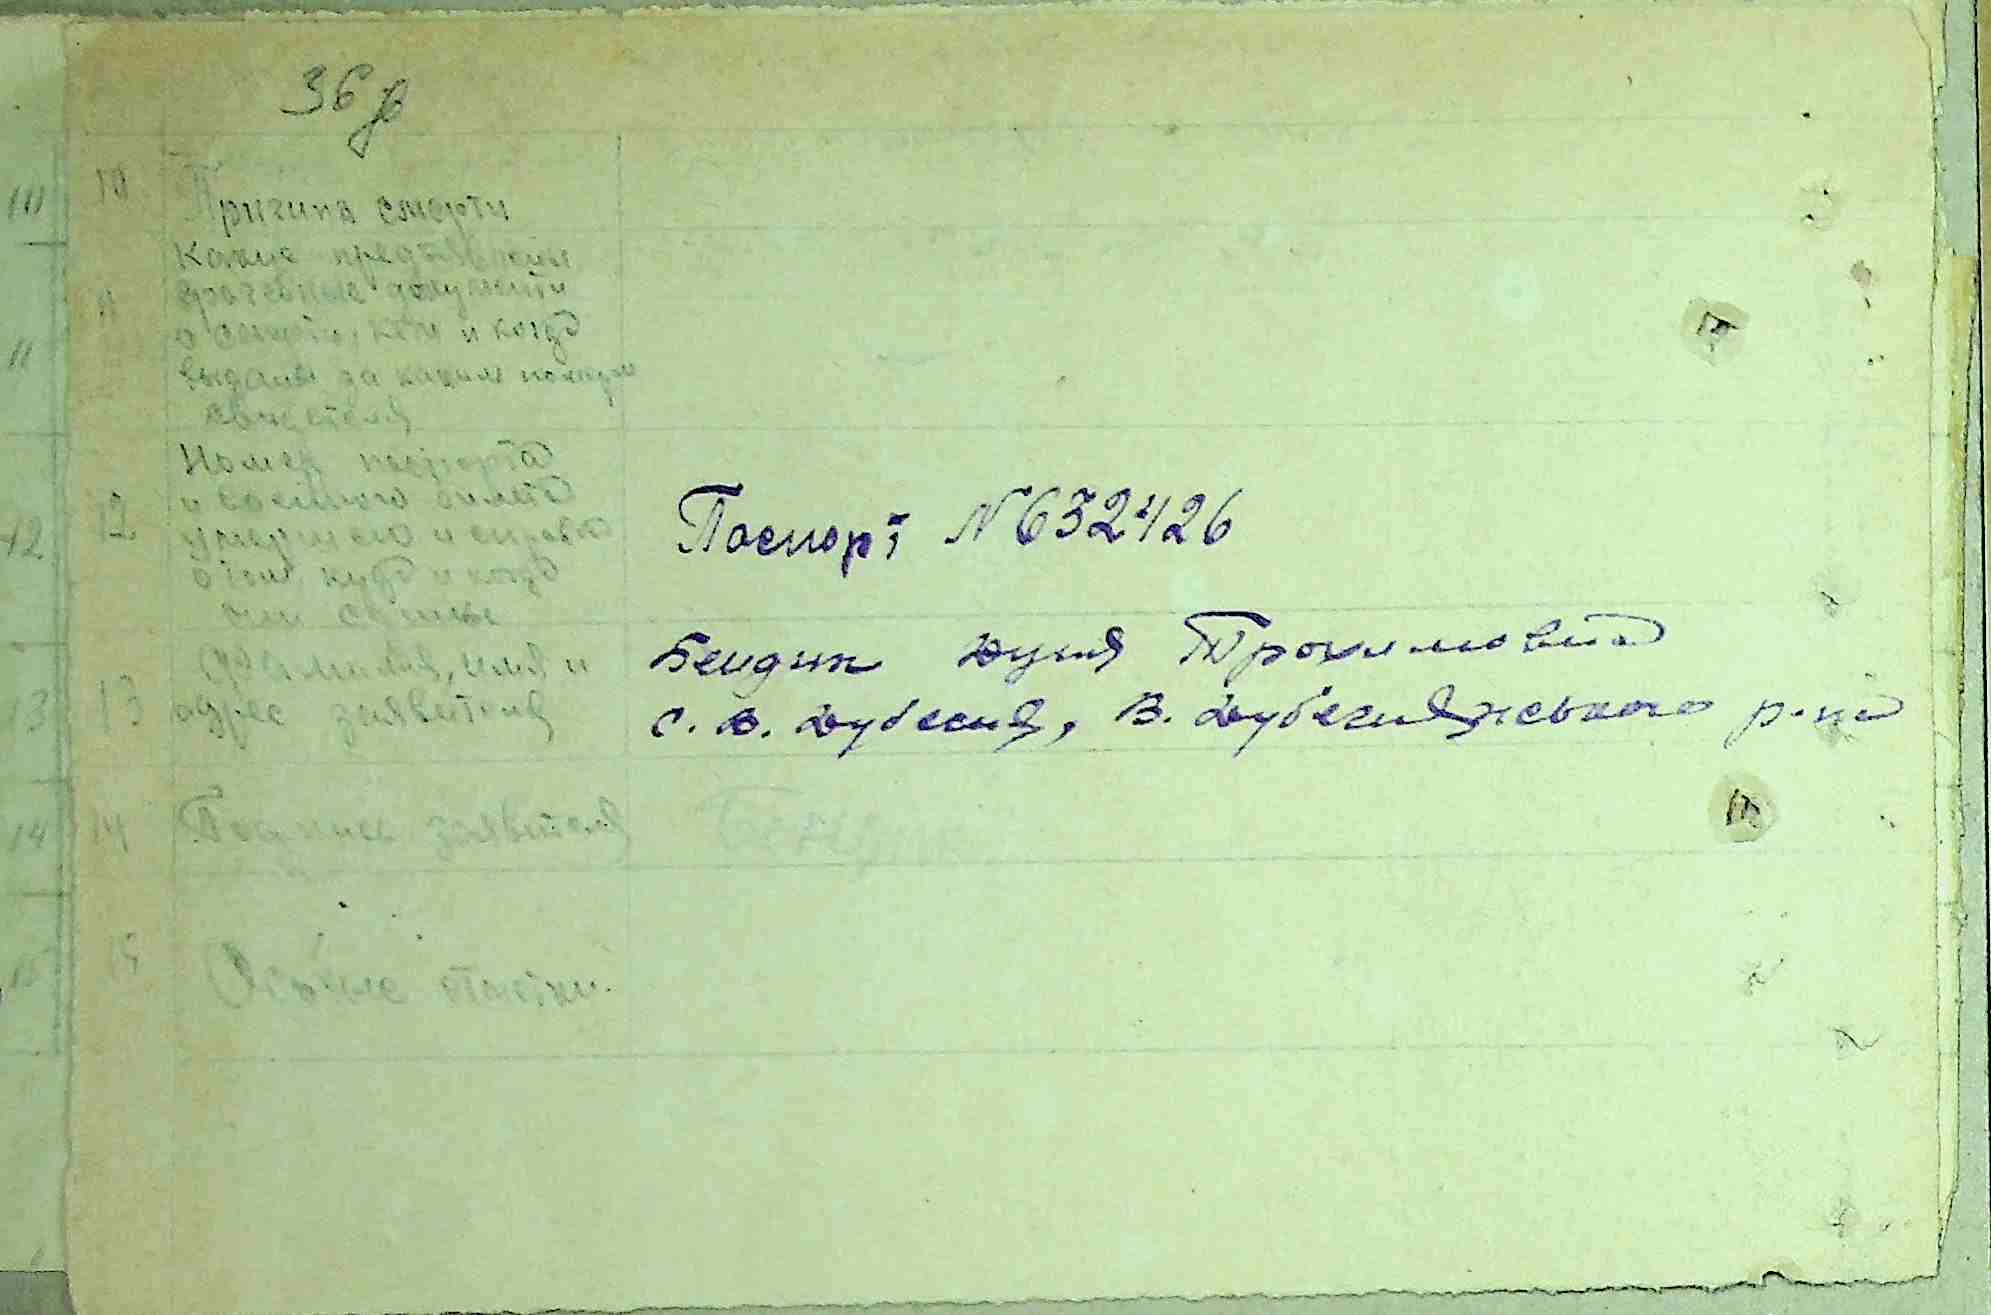 36
10 10 Причина смерти
Какие представлены
11 11 врачебные документы
о смерти, кем и когда
выданы за каким номером
свидетеля
Номер паспорта
и военного билета
12 12 умершего и справка
о том куда и когда
они сданы
Паспорт N 632426
13 13 Фамилия, имя и
адрес заявителя
Бендик Дуня Трохимовна
с. В. Дубечня, В. Дубечнянського р-на
14 14 Подпись заявителя Бендик
15 15 Особые отметки.